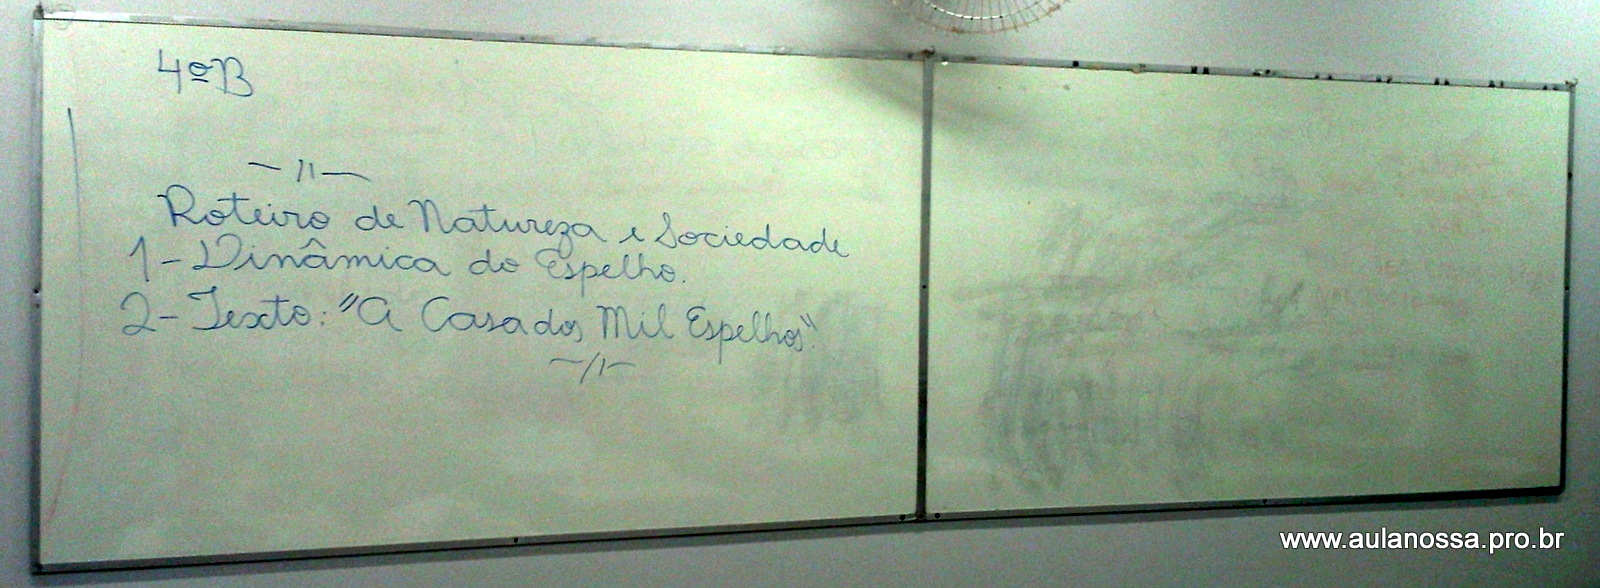 4ºB
—//—
Roteiro de Natureza e Sociedade
1- Dinâmica do Espelho.
2- Texto: "A Casa dos Mil Espelhos".
—//—
www.aulanossa.pro.br